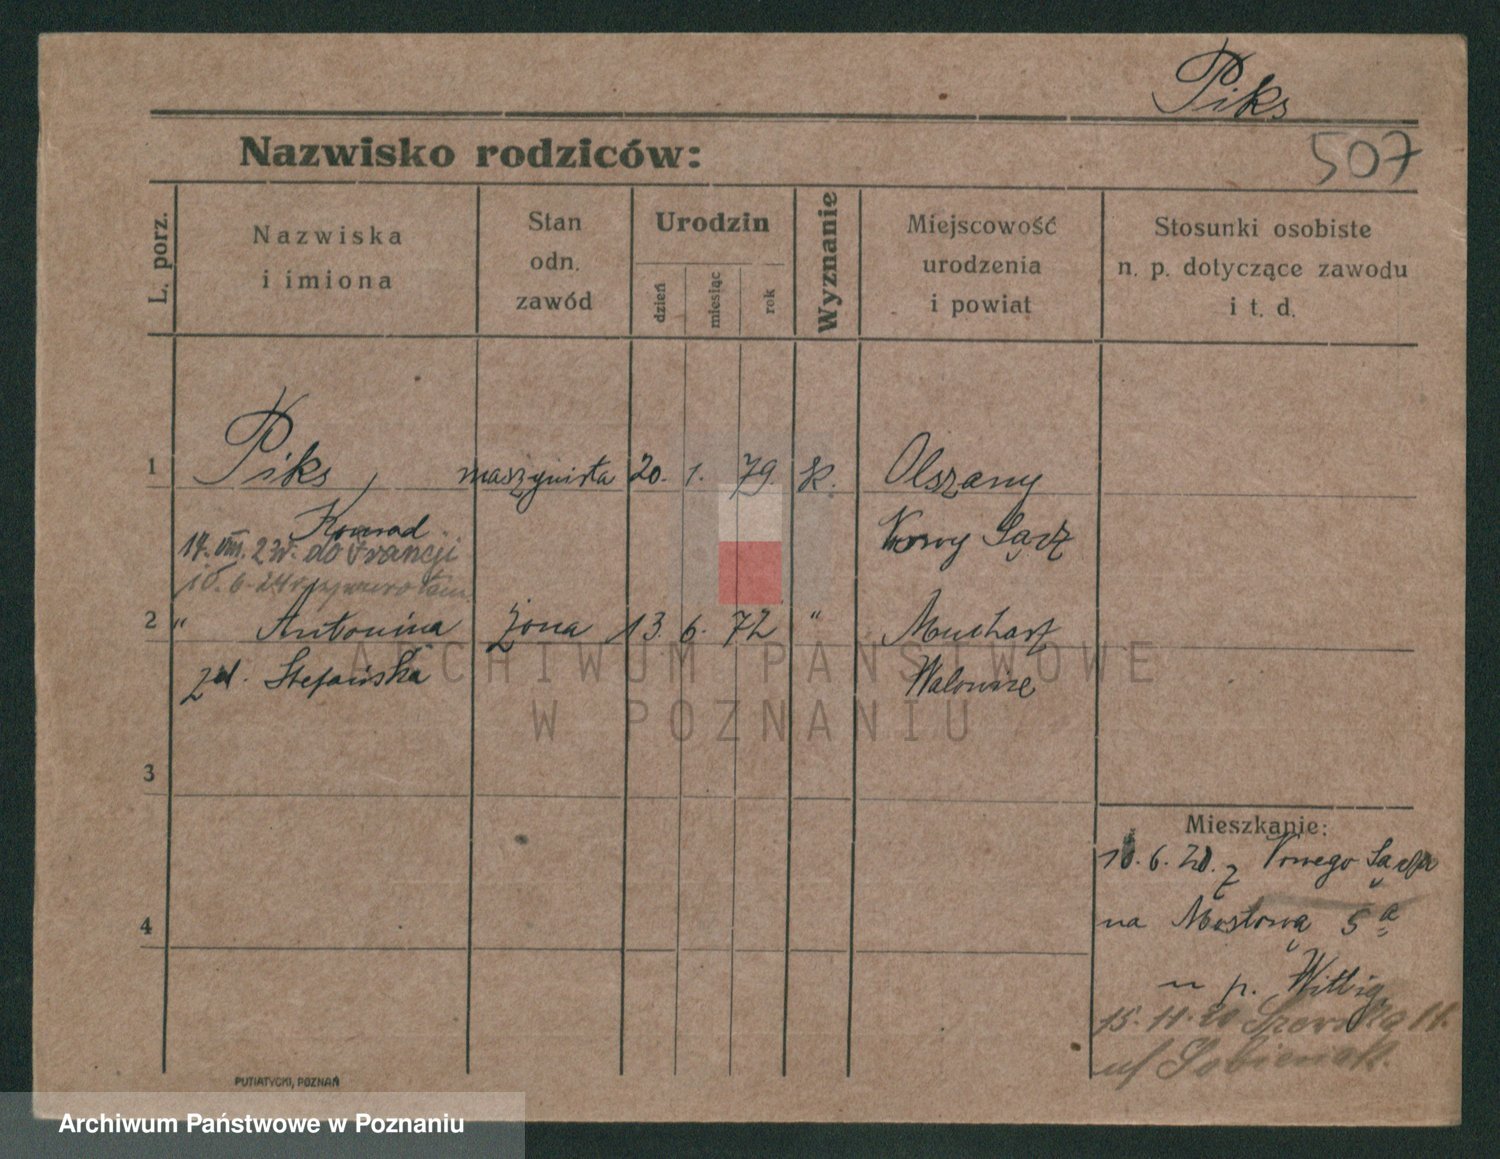 Piks
507
Nazwisko rodziców:
L. porz.
Nazwiska
i imiona
Stan
odn.
zawód
Urodzin
dzień
miesiąc
rok
Wyznanie
Miejscowość
urodzenia
i powiat
Stosunki osobiste
n. p. dotyczące zawodu
i t. d.
1 Piks, maszynista 20. 1. 79 k. Olszany
Konrad Nowy Sącz
14. VIII. 23r. do Francji
10. 6. 24
2 " Antonina żona 13. 6. 72 " Mucharz
zd. Stefańska
3
4
Mieszkanie:
10. 6. 20. z Nowego Sącza
na Mostową 5a
u p. Wittig
15. 11. 20 Szeroka 11.
u/
PUTIATYCKI, POZNAŃ
ARCHIWUM PAŃSTWOWE
W POZNANIU
Archiwum Państwowe w Poznaniu